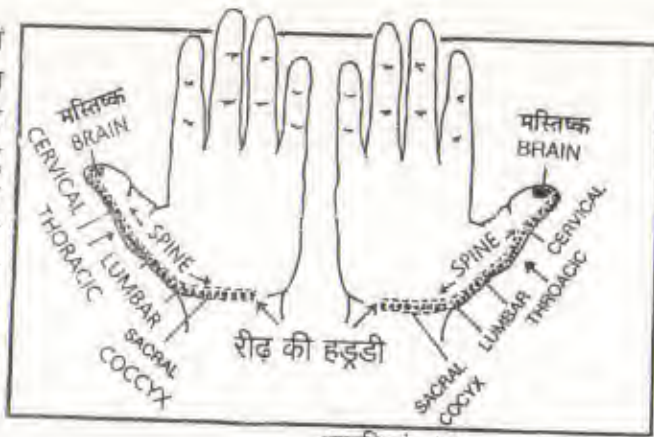 मस्तिष्क
BRAIN
CERVICAL
THORACIC
LUMBAR
SPINE
SACRAL
COCCYX
रीढ़ की हड्डी
मस्तिष्क
BRAIN
CERVICAL
SPINE
THROACIC
LUMBAR
SACRAL
COCYX